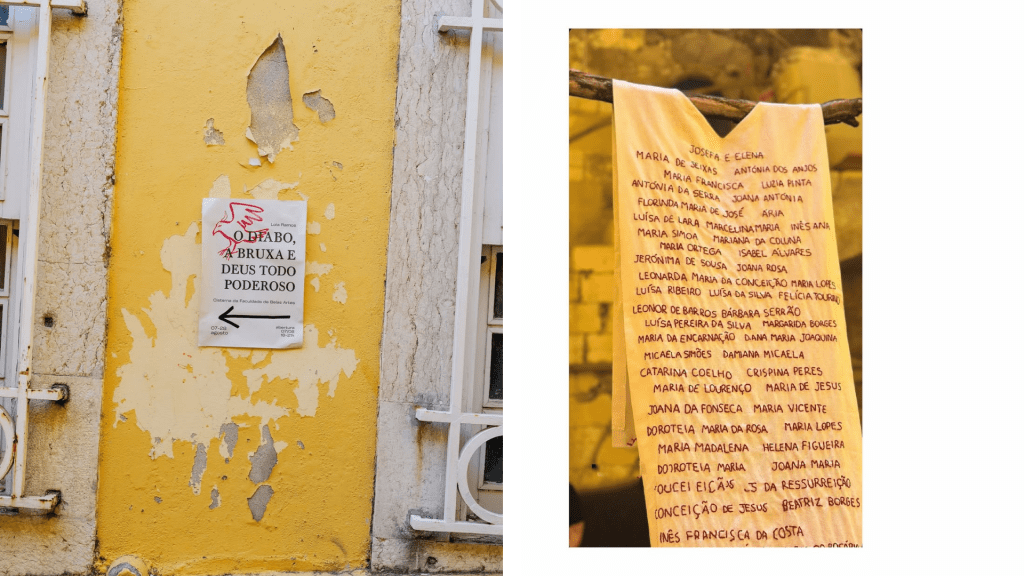 Luis Ramos
O DIABO,
A BRUXA E
DEUS TODO
PODEROSO
Cisterna da Faculdade de Belas Artes
agosto
abertura
JOSEFA E ELENA
MARIA DE SEIXAS ANTÓNIA DOS ANJOS
MARIA FRANCISCA LUZIA PINTA
ANTÓNIA DA SERRA JOANA ANTÓNIA
FLORINDA MARIA DE JOSÉ ARIA
LUÍSA DE LARA MARCELINA MARIA INÊS ANA
MARIA SIMOA MARIANA DA COLUNA
MARIA ORTEGA ISABEL ALVARES
JERÓNIMA DE SOUSA JOANA ROSA
LEONARDA MARIA DA CONCEIÇÃO MARIA LOPES
LUÍSA RIBEIRO LUÍSA DA SILVA FELÍCIA TOURINHO
LEONOR DE BARROS BÁRBARA SERRÃO
LUÍSA PEREIRA DA SILVA MARGARIDA BORGES
MARIA DA ENCARNAÇÃO DANA MARIA JOAQUINA
MICAELA SIMÕES DAMIANA MICAELA
CATARINA COELHO CRISPINA PERES
MARIA DE LOURENÇO MARIA DE JESUS
JOANA DA FONSECA MARIA VICENTE
DOROTEIA MARIA DA ROSA MARIA LOPES
MARIA MADALENA HELENA FIGUEIRA
DOROTEIA MARIA JOANA MARIA
DA RESSURREIÇÃO
CONCEIÇÃO DE JESUS BEATRIZ BORGES
INÊS FRANCISCA DA COSTA